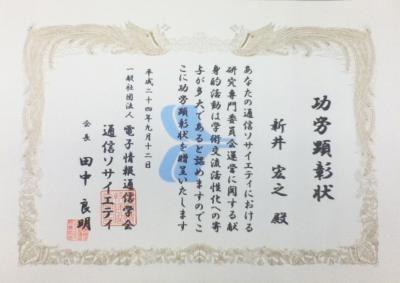 功労顕彰状
新井 宏之 殿
あなたの通信ソサイエティにおける
研究専門委員会運営に関する献
身的活動は学術交流活性化への寄
与が多大であると認めますのでこ
こに功労顕彰状を贈呈いたします
平成二十四年九月十二日
一般社団法人 電子情報通信学会
通信ソサイエティ
会長 田中 良明